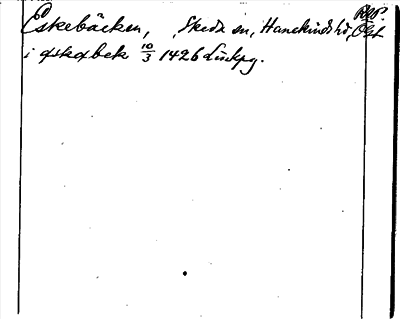 Eskebäcken, Skeda sn, Hanekinds hd, Ögl
i æskæbek 10/3 1426 Linkpg.